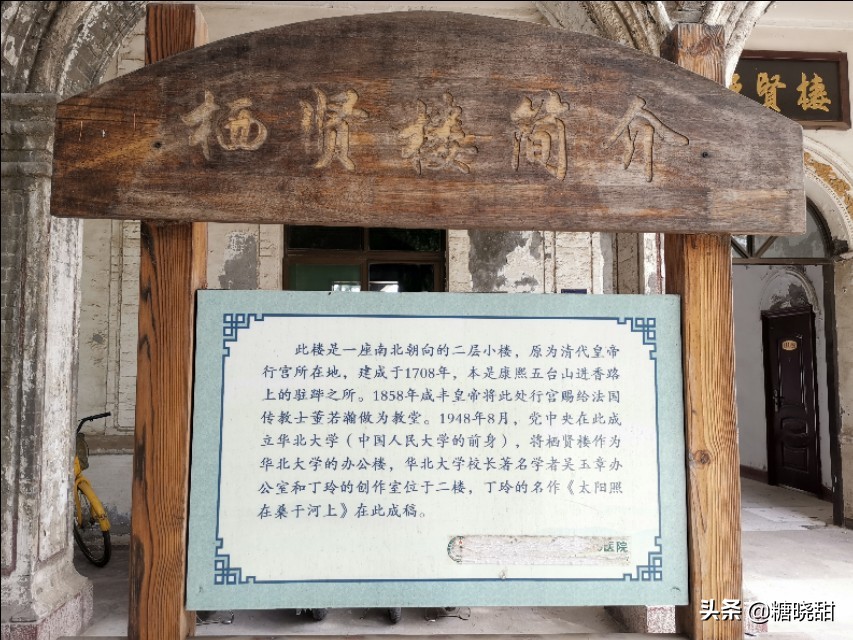 栖贤楼简介
贤楼
此楼是一座南北朝向的二层小楼，原为清代皇帝
行宫所在地，建成于1708年，本是康熙五台山进香路
上的驻跸之所。1858年咸丰皇帝将此处行宫赐给法国
传教士董若瀚做为教堂。1948年8月，党中央在此成
立华北大学（中国人民大学的前身），将栖贤楼作为
华北大学的办公楼，华北大学校长著名学者吴玉章办
公室和丁玲的创作室位于二楼，丁玲的名作《太阳照
在桑干河上》在此成稿。
医院
头条 @糖晓甜